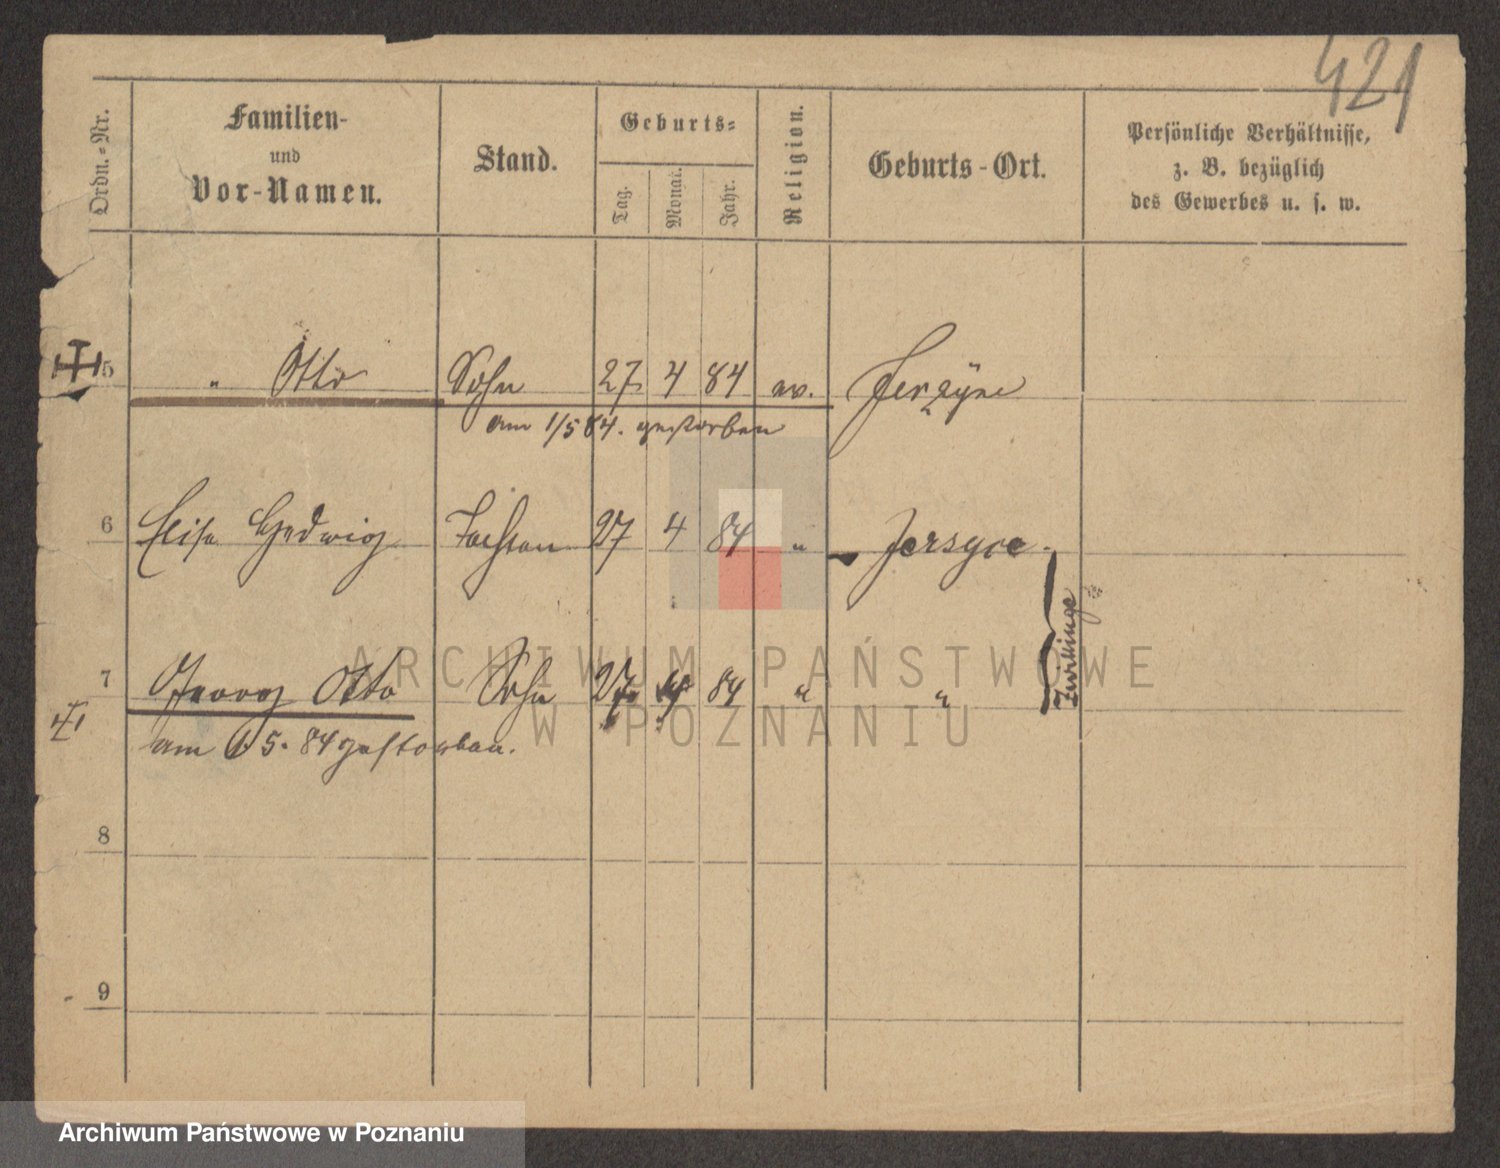 421
Ordn.-Nr.
Familien-
und
Vor-Namen.
Stand.
Geburts-
Tag.
Monat.
Jahr.
Religion.
Geburts-Ort.
Persönliche Verhältnisse,
z. B. bezüglich
des Gewerbes u. s. w.
5 " Otto Sohn 27 4 84 ev. Jerzyce
am 1/5 84. gestorben
6 Elise Hedwig Tochter 27 4 84 " Jersyce
Zwillinge
7 Georg Otto Sohn 27 4 84 " "
am 1. 5. 84 gestorben.
8
9
ARCHIWUM PAŃSTWOWE
W POZNANIU
Archiwum Państwowe w Poznaniu